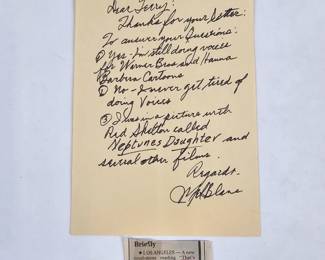 Dear Terry:
Thanks for your letter:
To answer your Questions:
① Yes - I'm still doing voices
for Warner Bros and Hanna
Barbera Cartoons
② No - I never get tired of
doing Voices
③ I was in a picture with
Red Skelton called
Neptunes Daughter and
several other films.
Regards -
Mel Blanc
Briefly
★ LOS ANGELES — A new
reading "That's